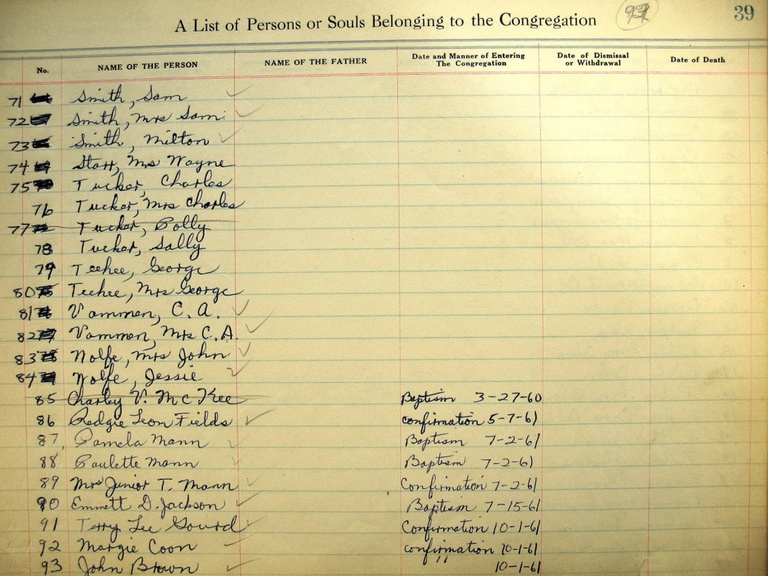 A List of Persons or Souls Belonging to the Congregation 39
No. NAME OF THE PERSON NAME OF THE FATHER Date and Manner of Entering The Congregation Date of Dismissal or Withdrawal Date of Death
71 Smith, Sam
72 Smith, Mrs Sam
73 Smith, Milton
74 Starr, Mrs Wayne
75 Tucker, Charles
76 Tucker, Mrs Charles
77 Tucker, Polly
78 Tucker, Sally
79 Teehee, George
80 Teehee, Mrs George
81 Vammen, C. A.
82 Vammen, Mrs C.A.
83 Wolfe, Mrs John
84 Wolfe, Jessie
85 Charley V. McKee Baptism 3-27-60
86 Redgie Leon Fields confirmation 5-7-61
87, Pamela Mann Baptism 7-2-61
88 Paulette Mann Baptism 7-2-61
89 Mrs Junior T. Mann Confirmation 7-2-61
90 Emmett D. Jackson Baptism 7-15-61
91 Terry Lee Gourd Confirmation 10-1-61
92 Margie Coon confirmation 10-1-61
93 John Brown 10-1-61